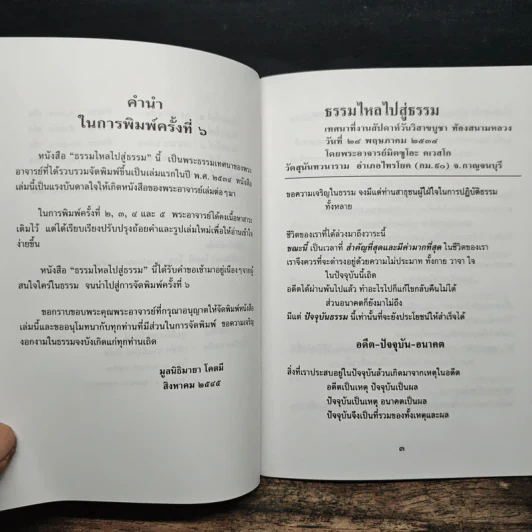 คำนำ
ในการพิมพ์ครั้งที่ ๖
หนังสือ "ธรรมไหลไปสู่ธรรม" นี้ เป็นพระธรรมเทศนาของพระ
อาจารย์ที่ได้รวบรวมจัดพิมพ์ขึ้นเป็นเล่มแรกในปี พ.ศ. ๒๕๓๔ หนังสือ
เล่มนี้เป็นแรงบันดาลใจให้เกิดหนังสือของพระอาจารย์เล่มต่อๆ มา
ในการพิมพ์ครั้งที่ ๒, ๓, ๔ และ ๕ พระอาจารย์ได้คงเนื้อหาสาระ
เดิมไว้ แต่ได้เรียบเรียงปรับปรุงถ้อยคำและรูปเล่มใหม่เพื่อให้อ่านเข้าใจ
ง่ายขึ้น
หนังสือ "ธรรมไหลไปสู่ธรรม" นี้ได้รับคำขอเข้ามาอยู่เนืองๆ จากผู้
สนใจใคร่ในธรรม จนนำไปสู่การจัดพิมพ์ครั้งที่ ๖
ขอกราบขอบพระคุณพระอาจารย์ที่กรุณาอนุญาตให้จัดพิมพ์หนังสือ
เล่มนี้และขออนุโมทนากับทุกท่านที่มีส่วนในการจัดพิมพ์ ขอความเจริญ
งอกงามในธรรมจงบังเกิดแก่ทุกท่านเถิด
มูลนิธิมายา โคตมี
สิงหาคม ๒๕๔๕
ธรรมไหลไปสู่ธรรม
เทศนาที่งานสัปดาห์วันวิสาขบูชา ท้องสนามหลวง
วันที่ ๒๔ พฤษภาคม ๒๕๓๔
โดยพระอาจารย์มิตซูโอะ คเวสโก
วัดสุนันทวนาราม อำเภอไทรโยค (กม.๕๐) จ.กาญจนบุรี
ขอความเจริญในธรรม จงมีแด่ท่านสาธุชนผู้ใฝ่ใจในการปฏิบัติธรรม
ทั้งหลาย
ชีวิตของเราที่ได้ล่วงมาถึงวาระนี้
ขณะนี้ เป็นเวลาที่ สำคัญที่สุดและมีค่ามากที่สุด ในชีวิตของเรา
เราจึงควรที่จะดำรงอยู่ด้วยความไม่ประมาท ทั้งกาย วาจา ใจ
ในปัจจุบันนี้เถิด
อดีตได้ผ่านพ้นไปแล้ว ทำอะไรไปก็แก้ไขกลับคืนไม่ได้
ส่วนอนาคตก็ยังมาไม่ถึง
มีแต่ ปัจจุบันธรรม นี้เท่านั้นที่จะยังประโยชน์ให้สำเร็จได้
อดีต-ปัจจุบัน-อนาคต
สิ่งที่เราประสบอยู่ในปัจจุบันล้วนเกิดมาจากเหตุในอดีต
อดีตเป็นเหตุ ปัจจุบันเป็นผล
ปัจจุบันเป็นเหตุ อนาคตเป็นผล
ปัจจุบันจึงเป็นที่รวมของทั้งเหตุและผล
๓